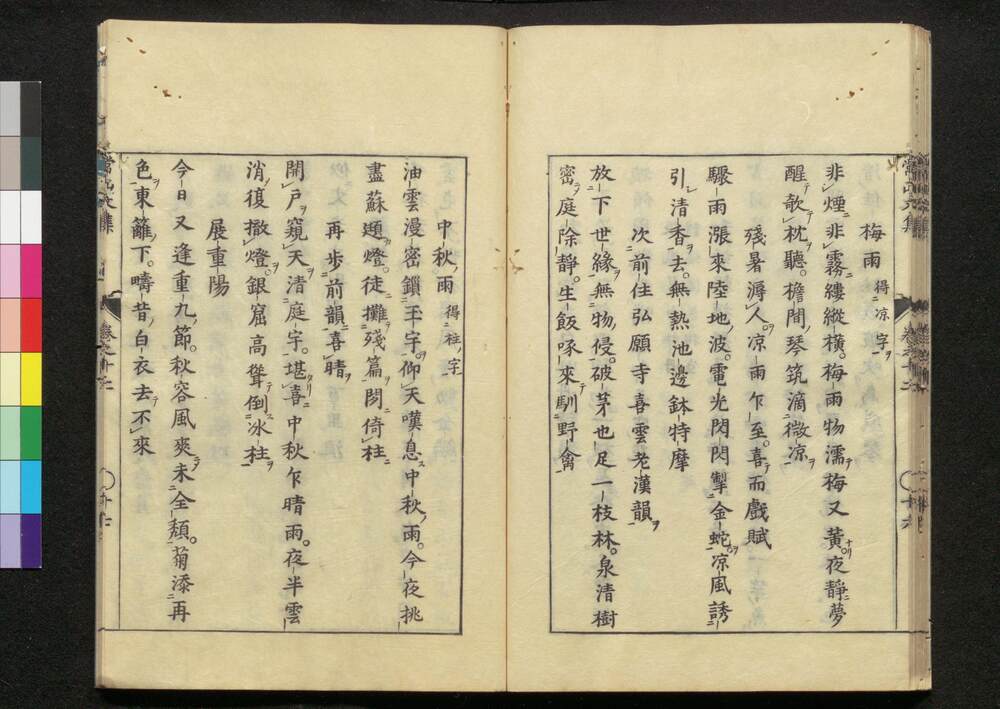 梅雨 得凉字
非煙非霧縷縱橫梅雨物濡梅又黃夜靜夢
醒欹枕聽檐間琴筑滴微凉
殘暑溽人凉雨乍至喜而戲賦
驟雨漲來陸地波電光閃閃掣金蛇凉風誘
引清香去無熱池邊鉢特摩
次前住弘願寺喜雲老漢韻
放下世緣無物侵破茅也足一枝林泉清樹
密庭除靜生飯啄來馴野禽
中秋雨 得柱字
油雲漫密鎖玉宇仰天嘆息中秋雨今夜挑
盡蘇題燈徒攤殘篇閑倚柱
再步前韻喜晴
開戶窺天清庭宇堪喜中秋乍晴雨夜半雲
消復撤燈銀窟高聳倒冰柱
展重陽
今日又逢重九節秋容風爽未全頹菊添再
色東籬下疇昔白衣去不來